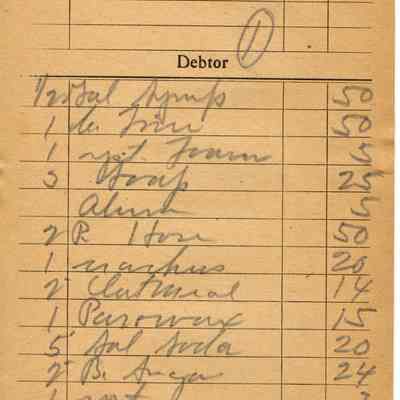 1
Debtor
1/2 Gal Syrup 50
1 50
1 5
3 Soap 25
Alum 5
2 P. Hose 50
1 20
2 Oatmeal 14
1 Parowax 15
5 Sal Soda 20
2 B. Sugar 24
1